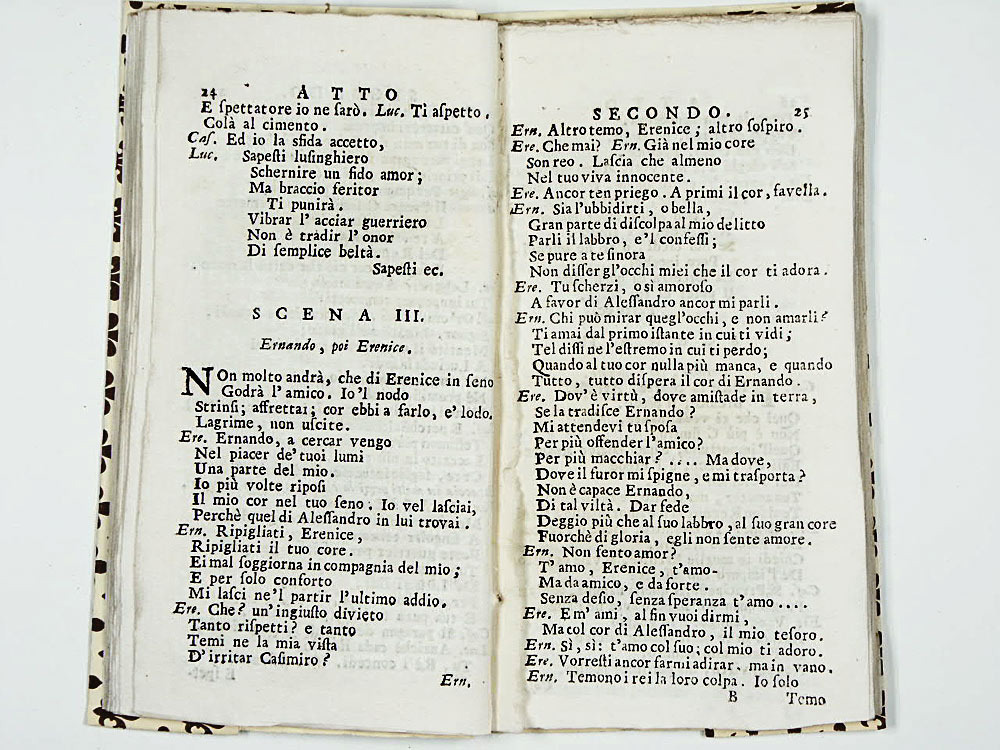 24 ATTO
E ſpettatore io ne ſarò. Luc. Ti aſpetto.
Colà al cimento.
Caſ. Ed io la sfida accetto,
Luc. Sapeſti luſinghiero
Schernire un fido amor;
Ma braccio feritor
Ti punirà.
Vibrar l' acciar guerriero
Non è tradir l' onor
Di ſemplice beltà.
Sapeſti ec.
SCENA III.
Ernando, poi Erenice.
NOn molto andrà, che di Erenice in ſeno
Godrà l' amico. Io 'l nodo
Strinſi; affrettai; cor ebbi a farlo, e' lodo.
Lagrime, non uſcite.
Ere. Ernando, a cercar vengo
Nel piacer de' tuoi lumi
Una parte del mio.
Io più volte ripoſi
Il mio cor nel tuo ſeno. Io vel laſciai,
Perchè quel di Aleſſandro in lui trovai.
Ern. Ripigliati, Erenice,
Ripigliati il tuo core.
Ei mal ſoggiorna in compagnia del mio;
E per ſolo conforto
Mi laſci ne'l partir l'ultimo addio.
Ere. Che? un' ingiuſto divieto
Tanto riſpetti? e tanto
Temi ne la mia viſta
D' irritar Caſimiro?
Ern.
SECONDO. 25
Ern. Altro temo, Erenice; altro ſoſpiro.
Ere. Che mai? Ern. Già nel mio core
Son reo. Laſcia che almeno
Nel tuo viva innocente.
Ere. Ancor ten priego. A primi il cor, favella.
Ern. Sia l'ubbidirti, o bella,
Gran parte di diſcolpa al mio delitto
Parli il labbro, e'l confeſſi;
Se pure a te ſinora
Non diſſer gl'occhi miei che il cor ti adora.
Ere. Tu ſcherzi, o sì amoroſo
A favor di Aleſſandro ancor mi parli.
Ern. Chi può mirar quegl'occhi, e non amarli?
Ti amai dal primo iſtante in cui ti vidi;
Tel diſſi ne l'eſtremo in cui ti perdo;
Quando al tuo cor nulla più manca, e quando
Tutto, tutto diſpera il cor di Ernando.
Ere. Dov' è virtù, dove amiſtade in terra,
Se la tradiſce Ernando?
Mi attendevi tu ſpoſa
Per più offender l'amico?
Per più macchiar? .... Ma dove,
Dove il furor mi ſpigne, e mi traſporta?
Non è capace Ernando,
Di tal viltà. Dar fede
Deggio più che al ſuo labbro, al ſuo gran core
Fuorchè di gloria, egli non ſente amore.
Ern. Non ſento amor?
T' amo, Erenice, t'amo-
Ma da amico, e da forte.
Senza deſio, ſenza ſperanza t'amo ....
Ere. E m' ami, al fin vuoi dirmi,
Ma col cor di Aleſſandro, il mio teſoro.
Ern. Sì, sì: t'amo col ſuo; col mio ti adoro.
Ere. Vorreſti ancor farmi adirar. ma in vano.
Ern. Temono i rei la loro colpa. Io ſolo
B Temo